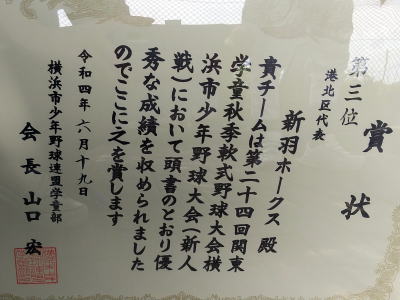 賞状
第三位
港北区代表
新羽ホークス 殿
貴チームは第二十四回関東
学童秋季軟式野球大会横
浜市少年野球大会(新人
戦)において頭書のとおり優
秀な成績を収められました
のでここに之を賞します
令和四年六月十九日
横浜市少年野球連盟学童部
会長 山口 宏